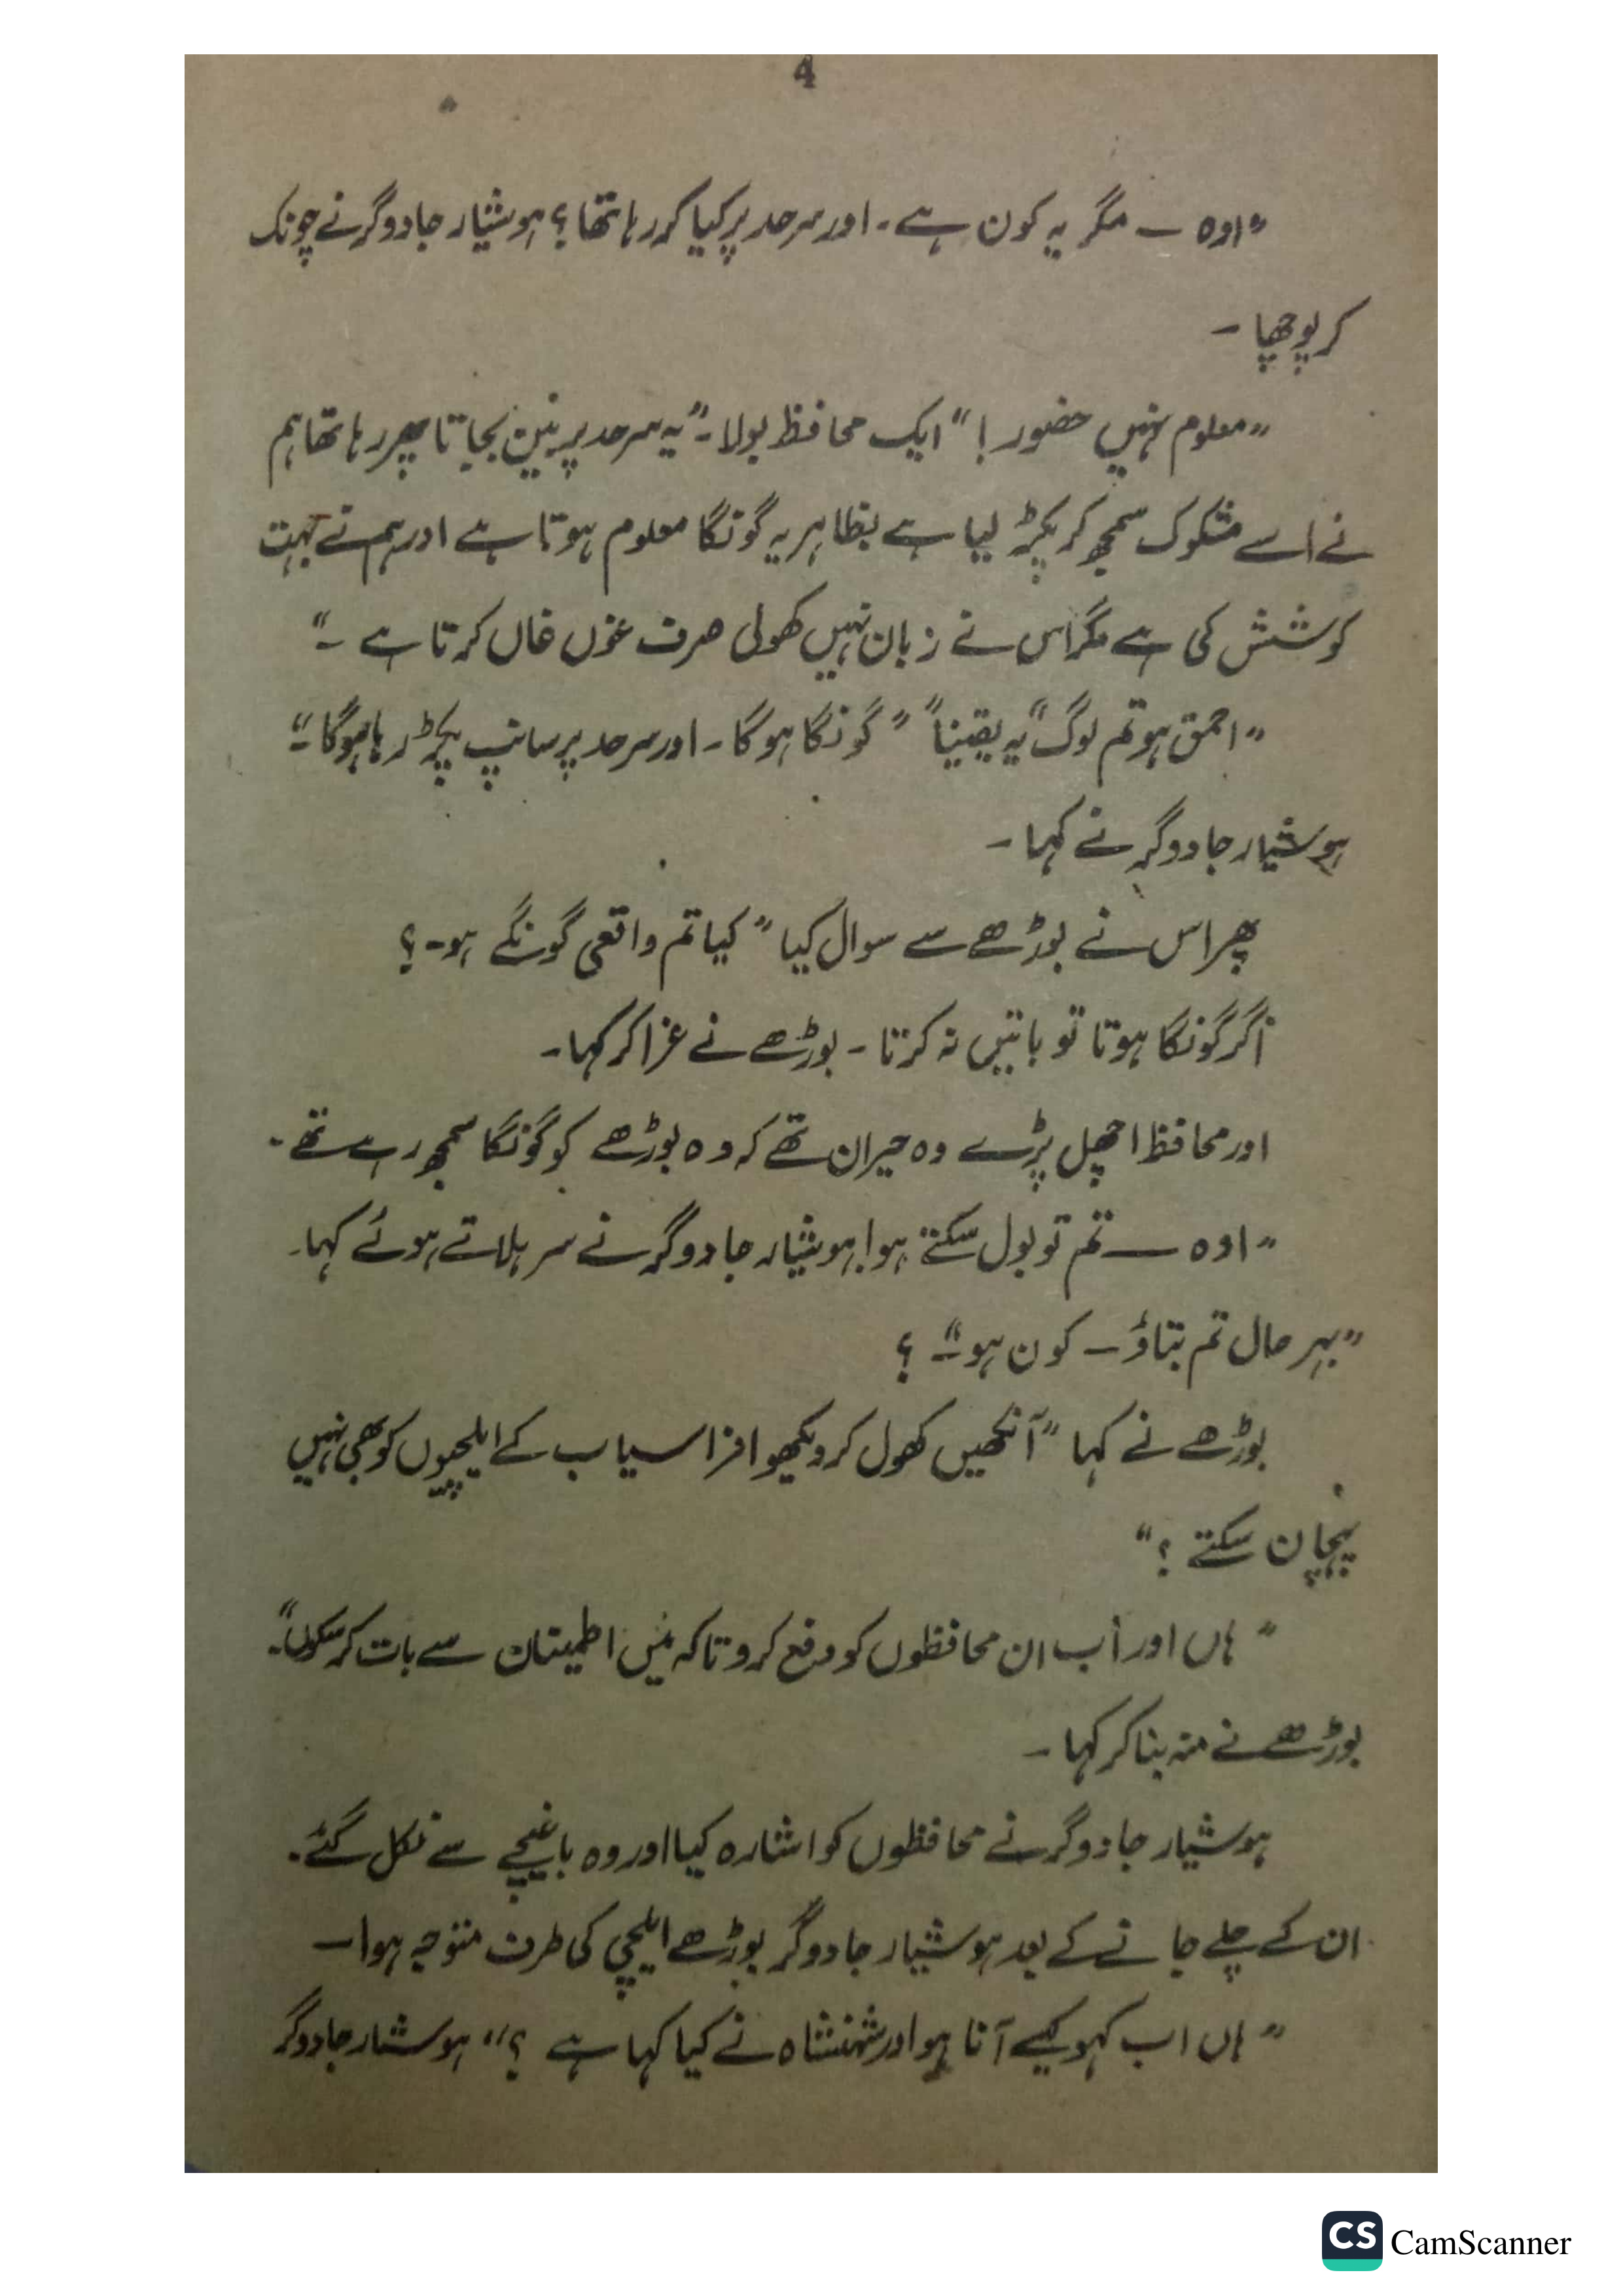 4
"اوہ ــ مگر یہ کون ہے۔ اور سرحد پر کیا کر رہا تھا؟ ہوشیار جادوگر نے چونک
کر پوچھا ۔
"معلوم نہیں حضور!" ایک محافظ بولا۔ "یہ سرحد پر بین بجاتا پھر رہا تھا ہم
نے اسے مشکوک سمجھ کر پکڑ لیا ہے بظاہر یہ گونگا معلوم ہوتا ہے اور ہم نے بہت
کوشش کی ہے مگر اس نے زبان نہیں کھولی صرف غوں غاں کرتا ہے ۔"
"احمق ہو تم لوگ" یہ یقیناً" "گونگا ہوگا۔ اور سرحد پر سانپ پکڑ رہا ہوگا۔"
ہوشیار جادوگر نے کہا ۔
پھر اس نے بوڑھے سے سوال کیا "کیا تم واقعی گونگے ہو۔؟
اگر گونگا ہوتا تو باتیں نہ کرتا ۔ بوڑھے نے غرا کر کہا۔
اور محافظ اچھل پڑے وہ حیران تھے کہ وہ بوڑھے کو گونگا سمجھ رہے تھے ۔
"اوہ ــ تم تو بول سکتے ہو! ہوشیار جادوگر نے سر ہلاتے ہوئے کہا۔
"بہر حال تم بتاؤ ــ کون ہو۔" ؟
بوڑھے نے کہا "آنکھیں کھول کر دیکھو افراسیاب کے ایلچیوں کو بھی نہیں
پہچان سکتے ؟"
"ہاں اور اب ان محافظوں کو دفع کرو تاکہ میں اطمینان سے بات کر سکوں۔"
بوڑھے نے منہ بنا کر کہا ۔
ہوشیار جادوگر نے محافظوں کو اشارہ کیا اور وہ باغیچے سے نکل گئے۔
ان کے چلے جانے کے بعد ہوشیار جادوگر بوڑھے ایلچی کی طرف متوجہ ہوا ــ
"ہاں اب کہو کیسے آنا ہوا اور شہنشاہ نے کیا کہا ہے ؟" ہوشیار جادوگر
CS CamScanner